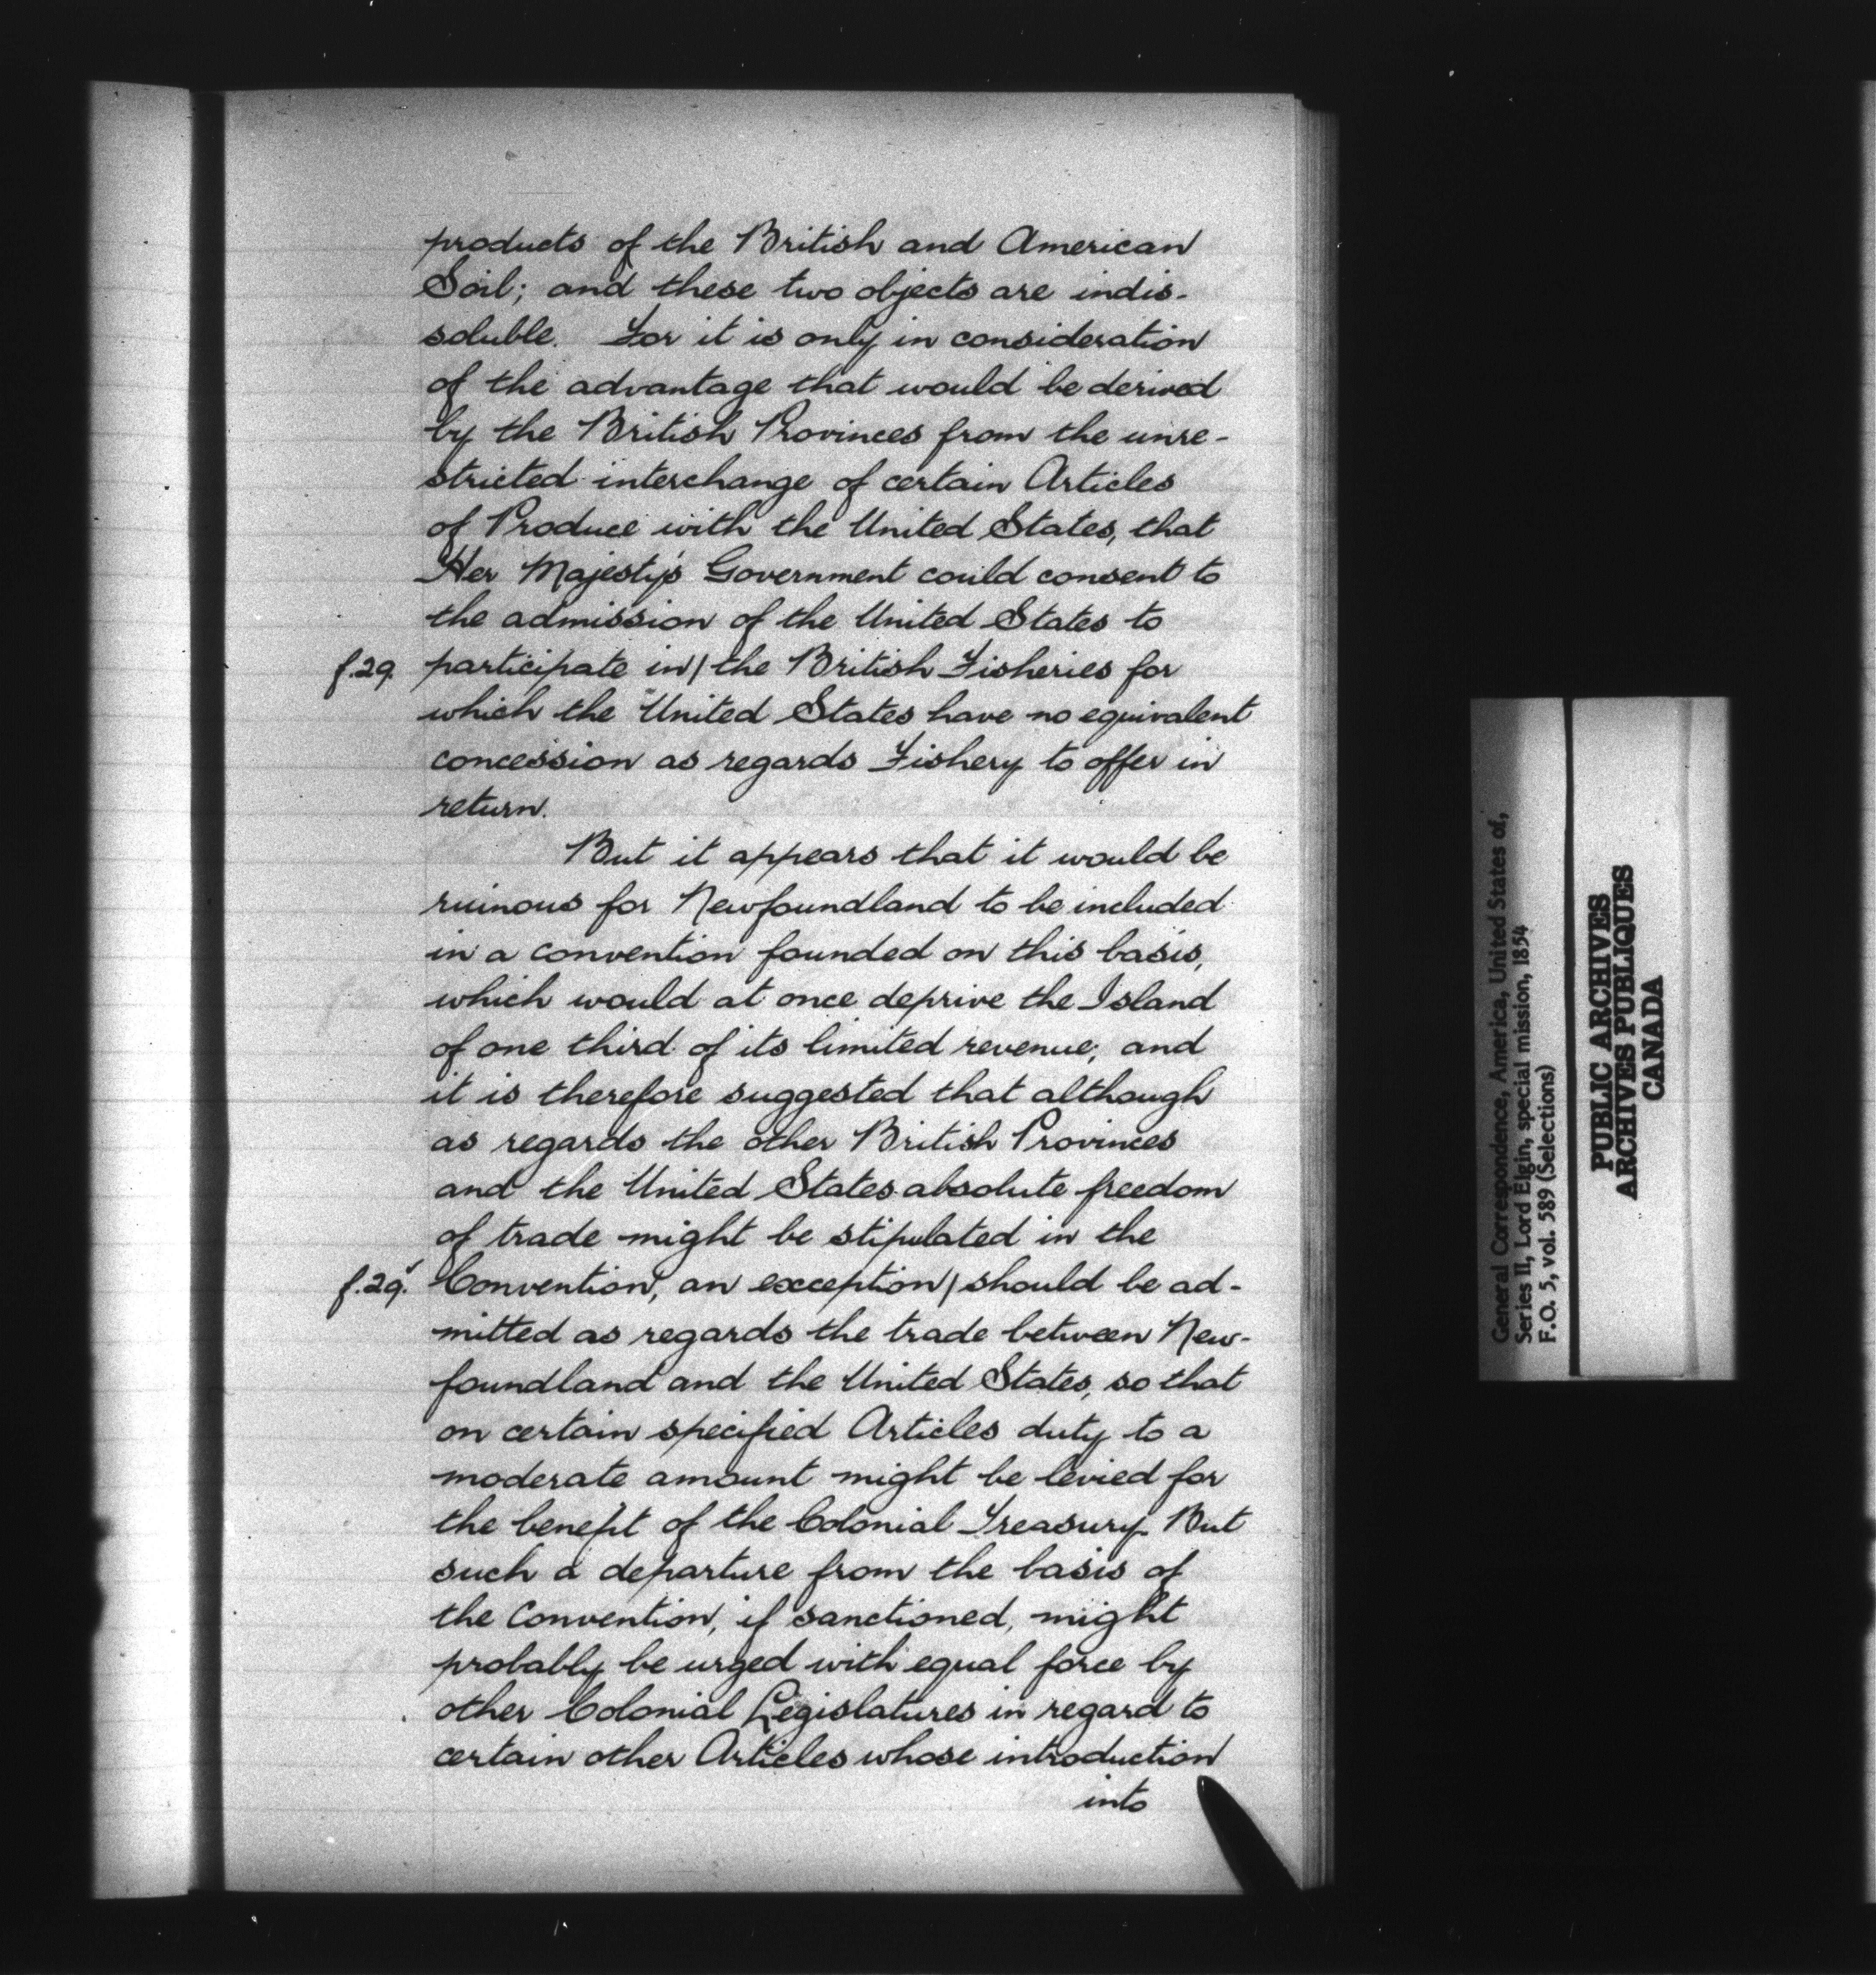 products of the British and American
Soil; and these two objects are indis-
soluble. For it is only in consideration
of the advantage that would be derived
by the British Provinces from the unre-
stricted interchange of certain Articles
of Produce with the United States, that
Her Majesty's Government could consent to
the admission of the United States to
f.29. participate in/the British Fisheries for
which the United States have no equivalent
concession as regards Fishery to offer in
return.
But it appears that it would be
ruinous for Newfoundland to be included
in a convention founded on this basis,
which would at once deprive the Island
of one third of its limited revenue; and
it is therefore suggested that although
as regards the other British Provinces
and the United States absolute freedom
of trade might be stipulated in the
f.29.ᵛ Convention, an exception/should be ad-
mitted as regards the trade between New-
foundland and the United States, so that
on certain specified Articles duty to a
moderate amount might be levied for
the benefit of the Colonial Treasury. But
such a departure from the basis of
the Convention, if sanctioned, might
probably be urged with equal force by
other Colonial Legislatures in regard to
certain other Articles whose introduction
into
General Correspondence, America, United States of,
Series II, Lord Elgin, special mission, 1854
F.O. 5, vol. 589 (Selections)
PUBLIC ARCHIVES
ARCHIVES PUBLIQUES
CANADA